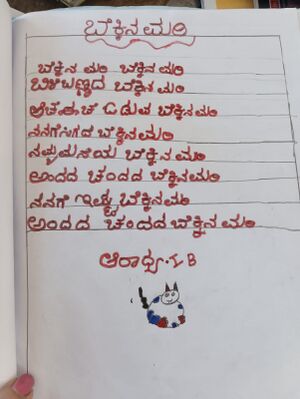 ಬೆಕ್ಕಿನ ಮರಿ
ಬೆಕ್ಕಿನ ಮರಿ ಬೆಕ್ಕಿನ ಮರಿ
ಬಿಳಿಬಣ್ಣದ ಬೆಕ್ಕಿನ ಮರಿ
ಓಡುವ ಬೆಕ್ಕಿನ ಮರಿ
ಬೆಕ್ಕಿನ ಮರಿ
ನಮ್ಮಮನೆಯ ಬೆಕ್ಕಿನ ಮರಿ
ಅಂದದ ಚಂದದ ಬೆಕ್ಕಿನ ಮರಿ
ನನಗೆ ಇಷ್ಟ ಬೆಕ್ಕಿನ ಮರಿ
ಅಂದದ ಚಂದದ ಬೆಕ್ಕಿನ ಮರಿ
ಆರಾಧ್ಯ. I B